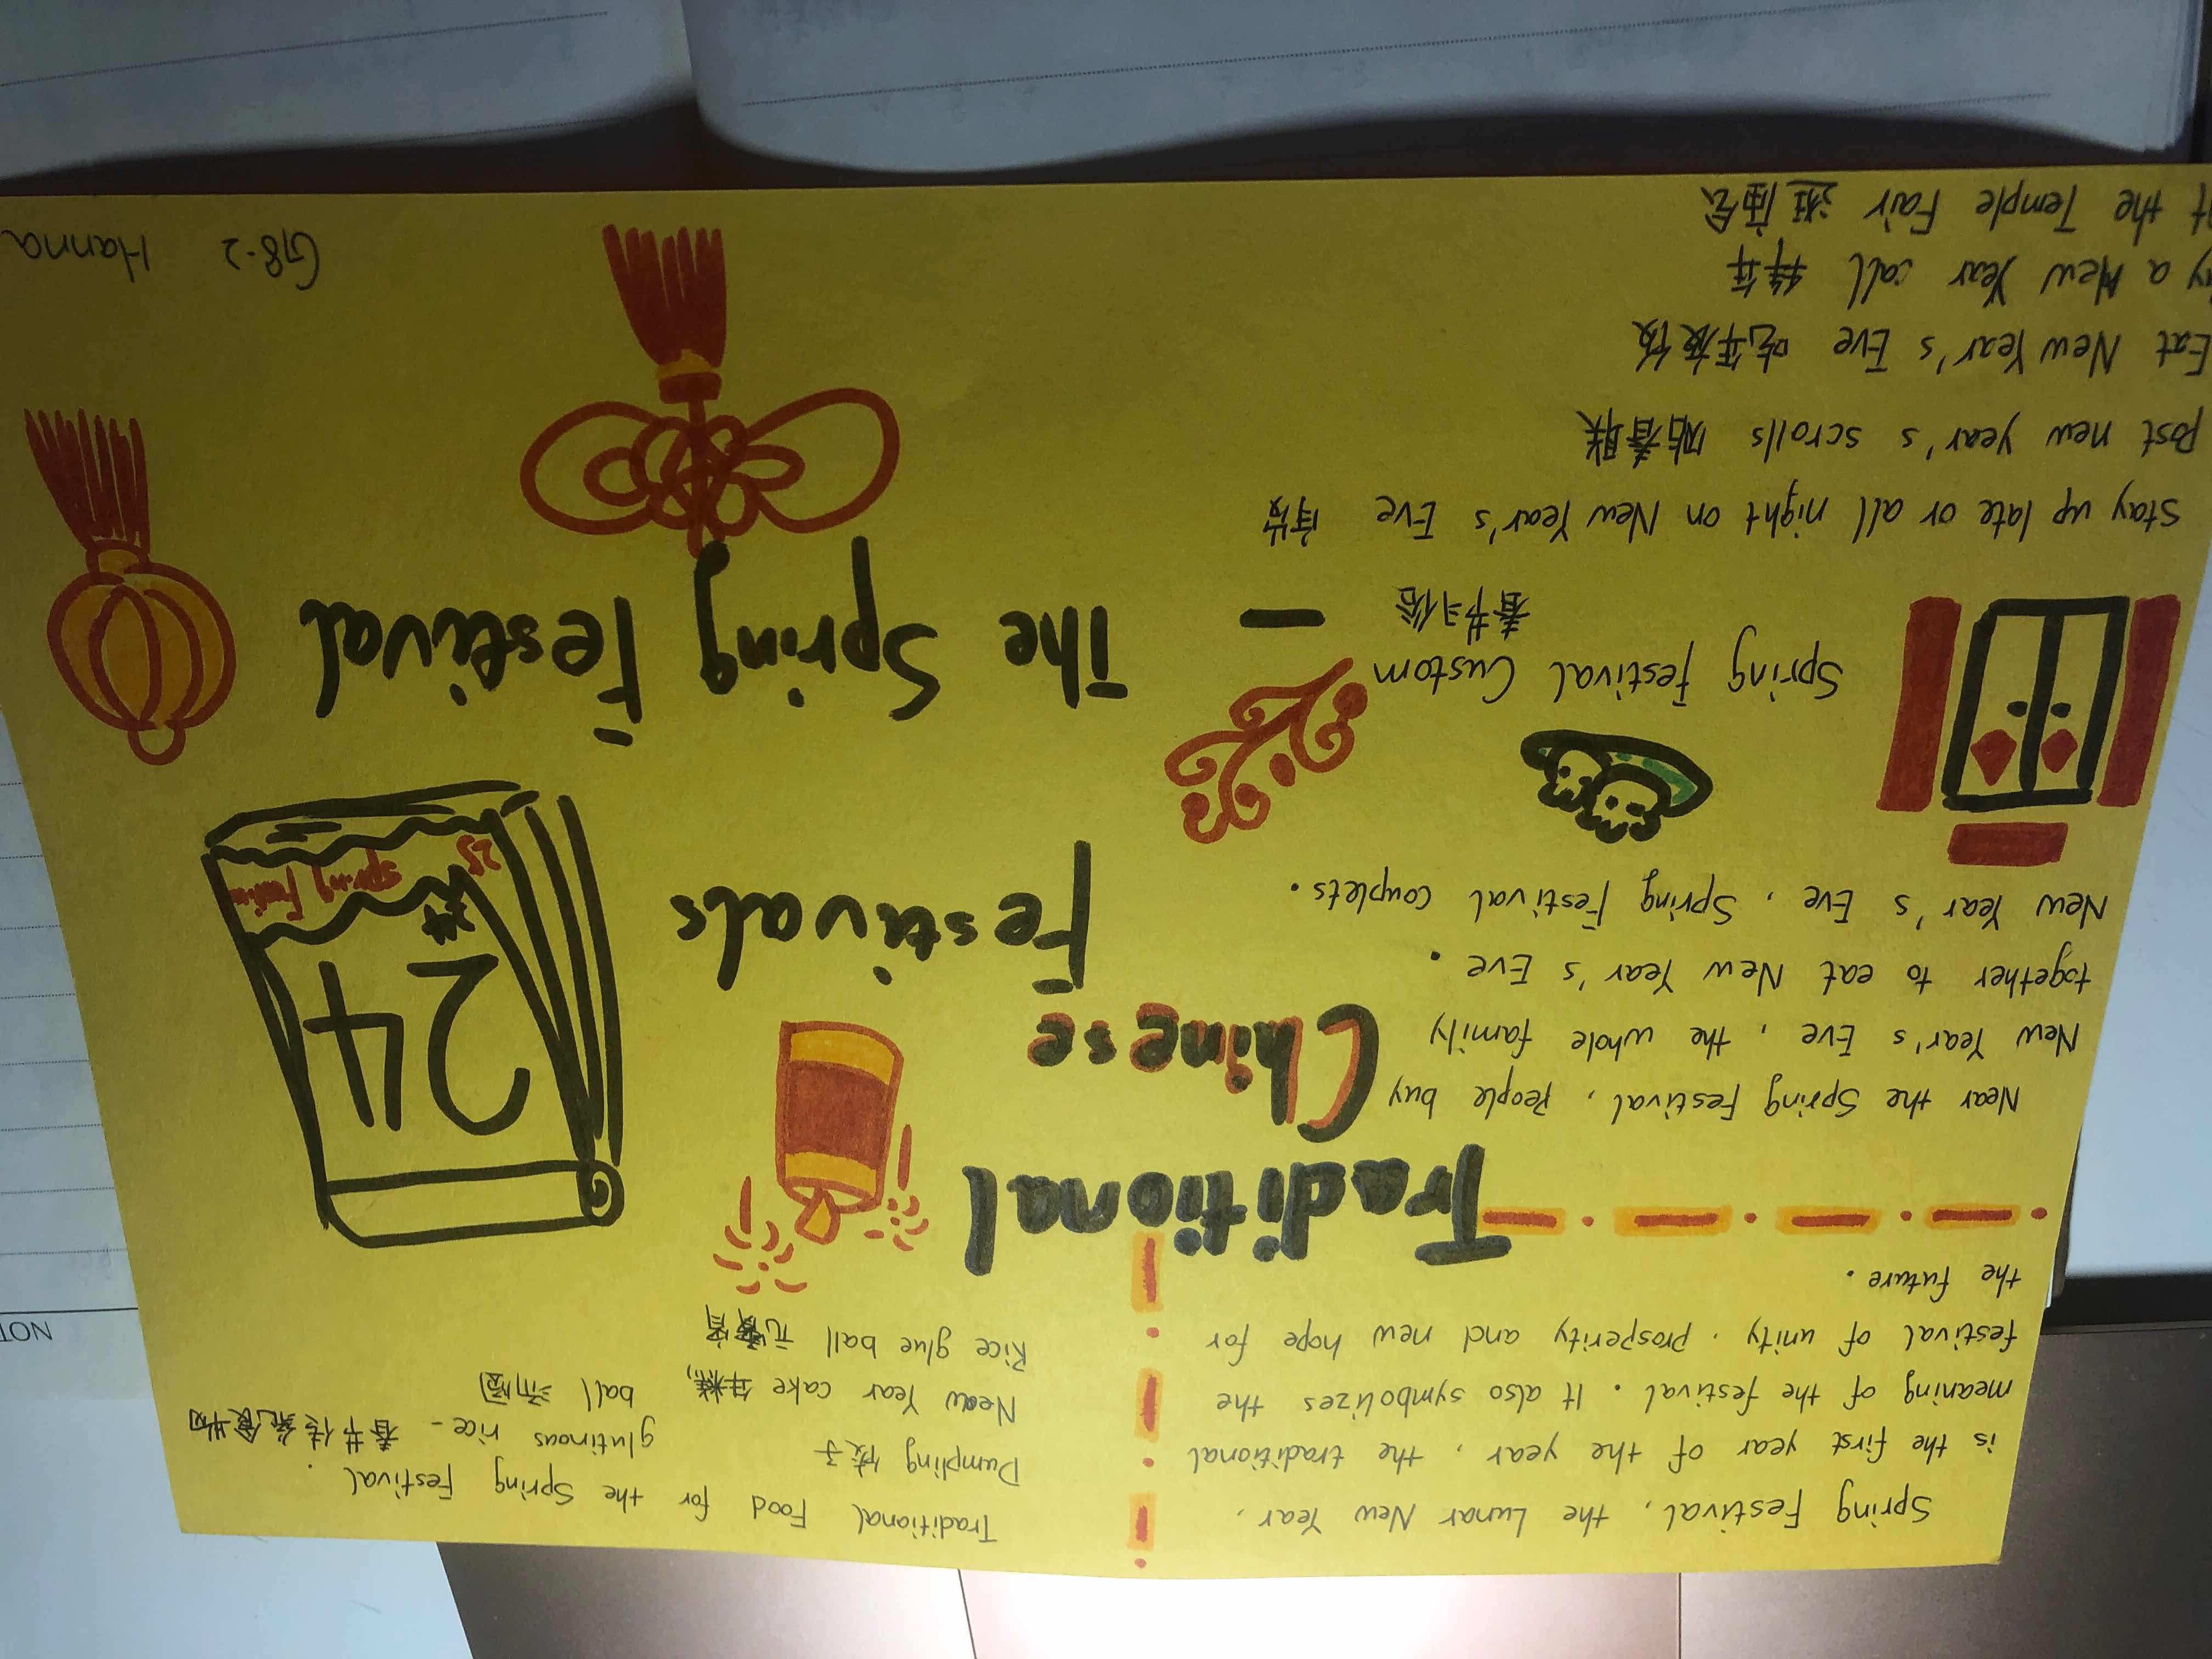 Spring Festival, the Lunar New Year,
is the first year of the year, the traditional
meaning of the festival. It also symbolizes the
festival of unity, prosperity and new hope for
the future.
Traditional Food for the Spring Festival
春节传统食物
Dumpling 饺子
glutinous rice-
ball 汤圆
New Year cake 年糕,
Rice glue ball 元宵
Traditional
Chinese
Festivals
- The Spring Festival
24
25
Spring Festival
Near the Spring Festival, People buy
New Year's Eve, the whole family
together to eat New Year's Eve.
New Year's Eve, Spring Festival couplets.
Spring Festival Custom
春节习俗
Stay up late or all night on New Year's Eve 守岁
Post new year's scrolls 贴春联
Eat New Year's Eve 吃年夜饭
a New Year call 拜年
the Temple Fair 逛庙会
G8-2 Hanna
NOT